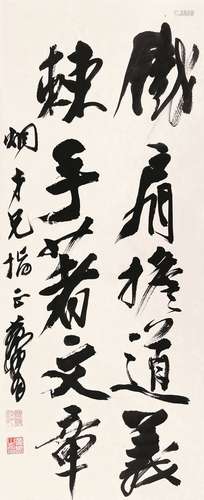 鐵肩擔道義
棘手著文章
炯才兄指正